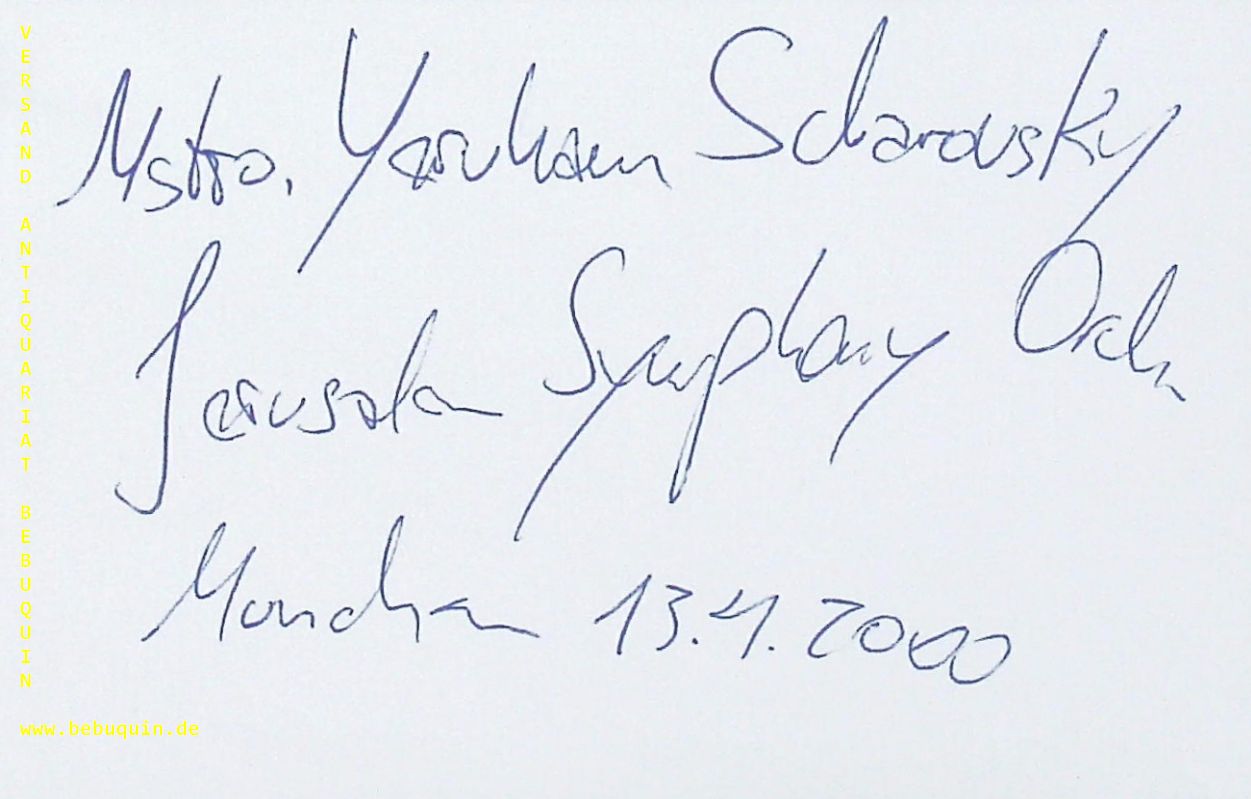 VERSAND ANTIQUARIAT BEBUQUIN
Mstro. Yeruham Scharovsky
Jerusalem Symphony Orch
München 13.4.2000
www.bebuquin.de